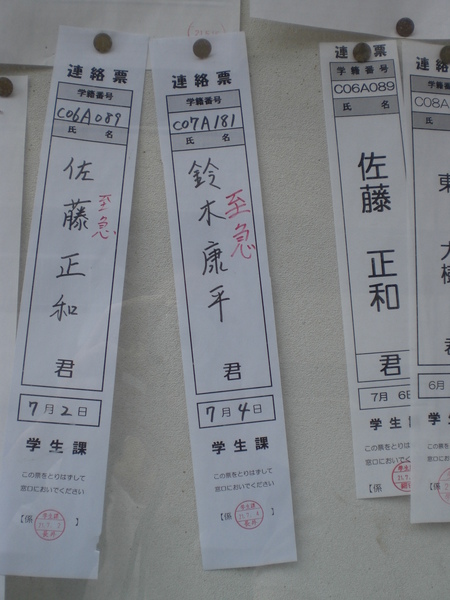 連絡票
学籍番号
C06A089
氏 名
佐藤正和
至急
君
7月2日
学生課
この票をとりはずして
窓口においでください
【係
連絡票
学籍番号
C07A181
氏 名
鈴木康平
至急
君
7月4日
学生課
この票をとりはずして
窓口においでください
【係
】
連絡票
学籍番号
C06A089
氏 名
佐藤 正和
君
7月 6日
学生課
この票をとりはずして
窓口においでください
【係
連
C08A
氏
東
大樹
君
6月
学生
この票を
窓口にお
【係